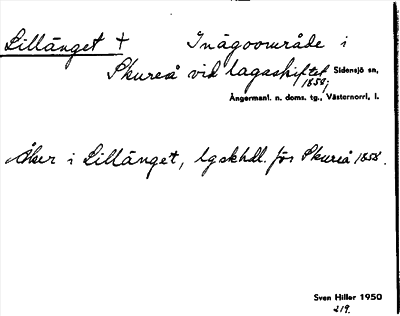 Lillänget + Inägoområde i
Skureå vid lagaskiftet Sidensjö sn,
1858;
Ångermanl. n. doms. tg., Västernorrl, l.
Åker i Lillänget, lgskhdl. för Skureå 1858.
Sven Hiller 1950
219.